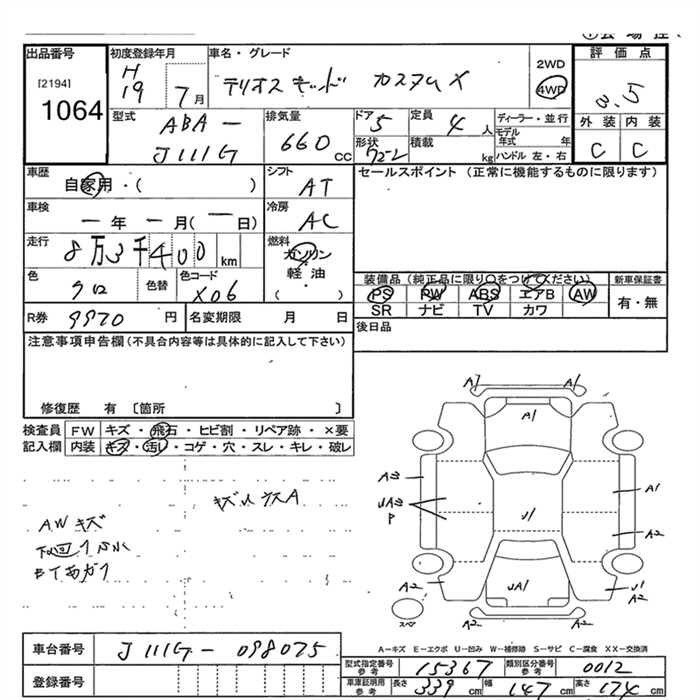 出品番号 初度登録年月 車名・グレード 2WD 評価点
[2194] H19 7月 テリオスキッド カスタムX 4WD 3.5
1064
型式 排気量 ドア 定員 ディーラー・並行 外装 内装
ABA- 660cc 5 4人 モデル年式 年 C C
J111G 形状 積載 kg ハンドル 左・右
車歴 シフト セールスポイント (正常に機能するものに限ります)
自家用・( ) AT
車検 冷房
一年 一月(一日) AC
走行 燃料
8万3千400km ガソリン
軽・油
( )
色 色替 色コード 装備品 (純正品に限り○をつけてください) 新車保証書
クロ X06 PS PW ABS エアB AW 有・無
SR ナビ TV カワ
R券 9970円 名変期限 月 日 後日品
注意事項申告欄(不具合内容等は具体的に記入して下さい)
修復歴 有〔箇所 〕
検査員 FW キズ・飛石・ヒビ割・リペア跡・×要
記入欄 内装 キズ・汚れ・コゲ・穴・スレ・キレ・破レ
AWキズ
A1 A1
A1
A1
U1
UA1
P
A2
A2
U1
A2
A2
スペア
A-キズ E-エクボ U-凹み W-補修跡 S-サビ C-腐食 XX-交換済
車台番号 J111G-098075
登録番号
型式指定番号 参考 15367 類別区分番号 参考 0012
車庫証明用 参考 長さ 339cm 幅 147cm 高さ 174cm